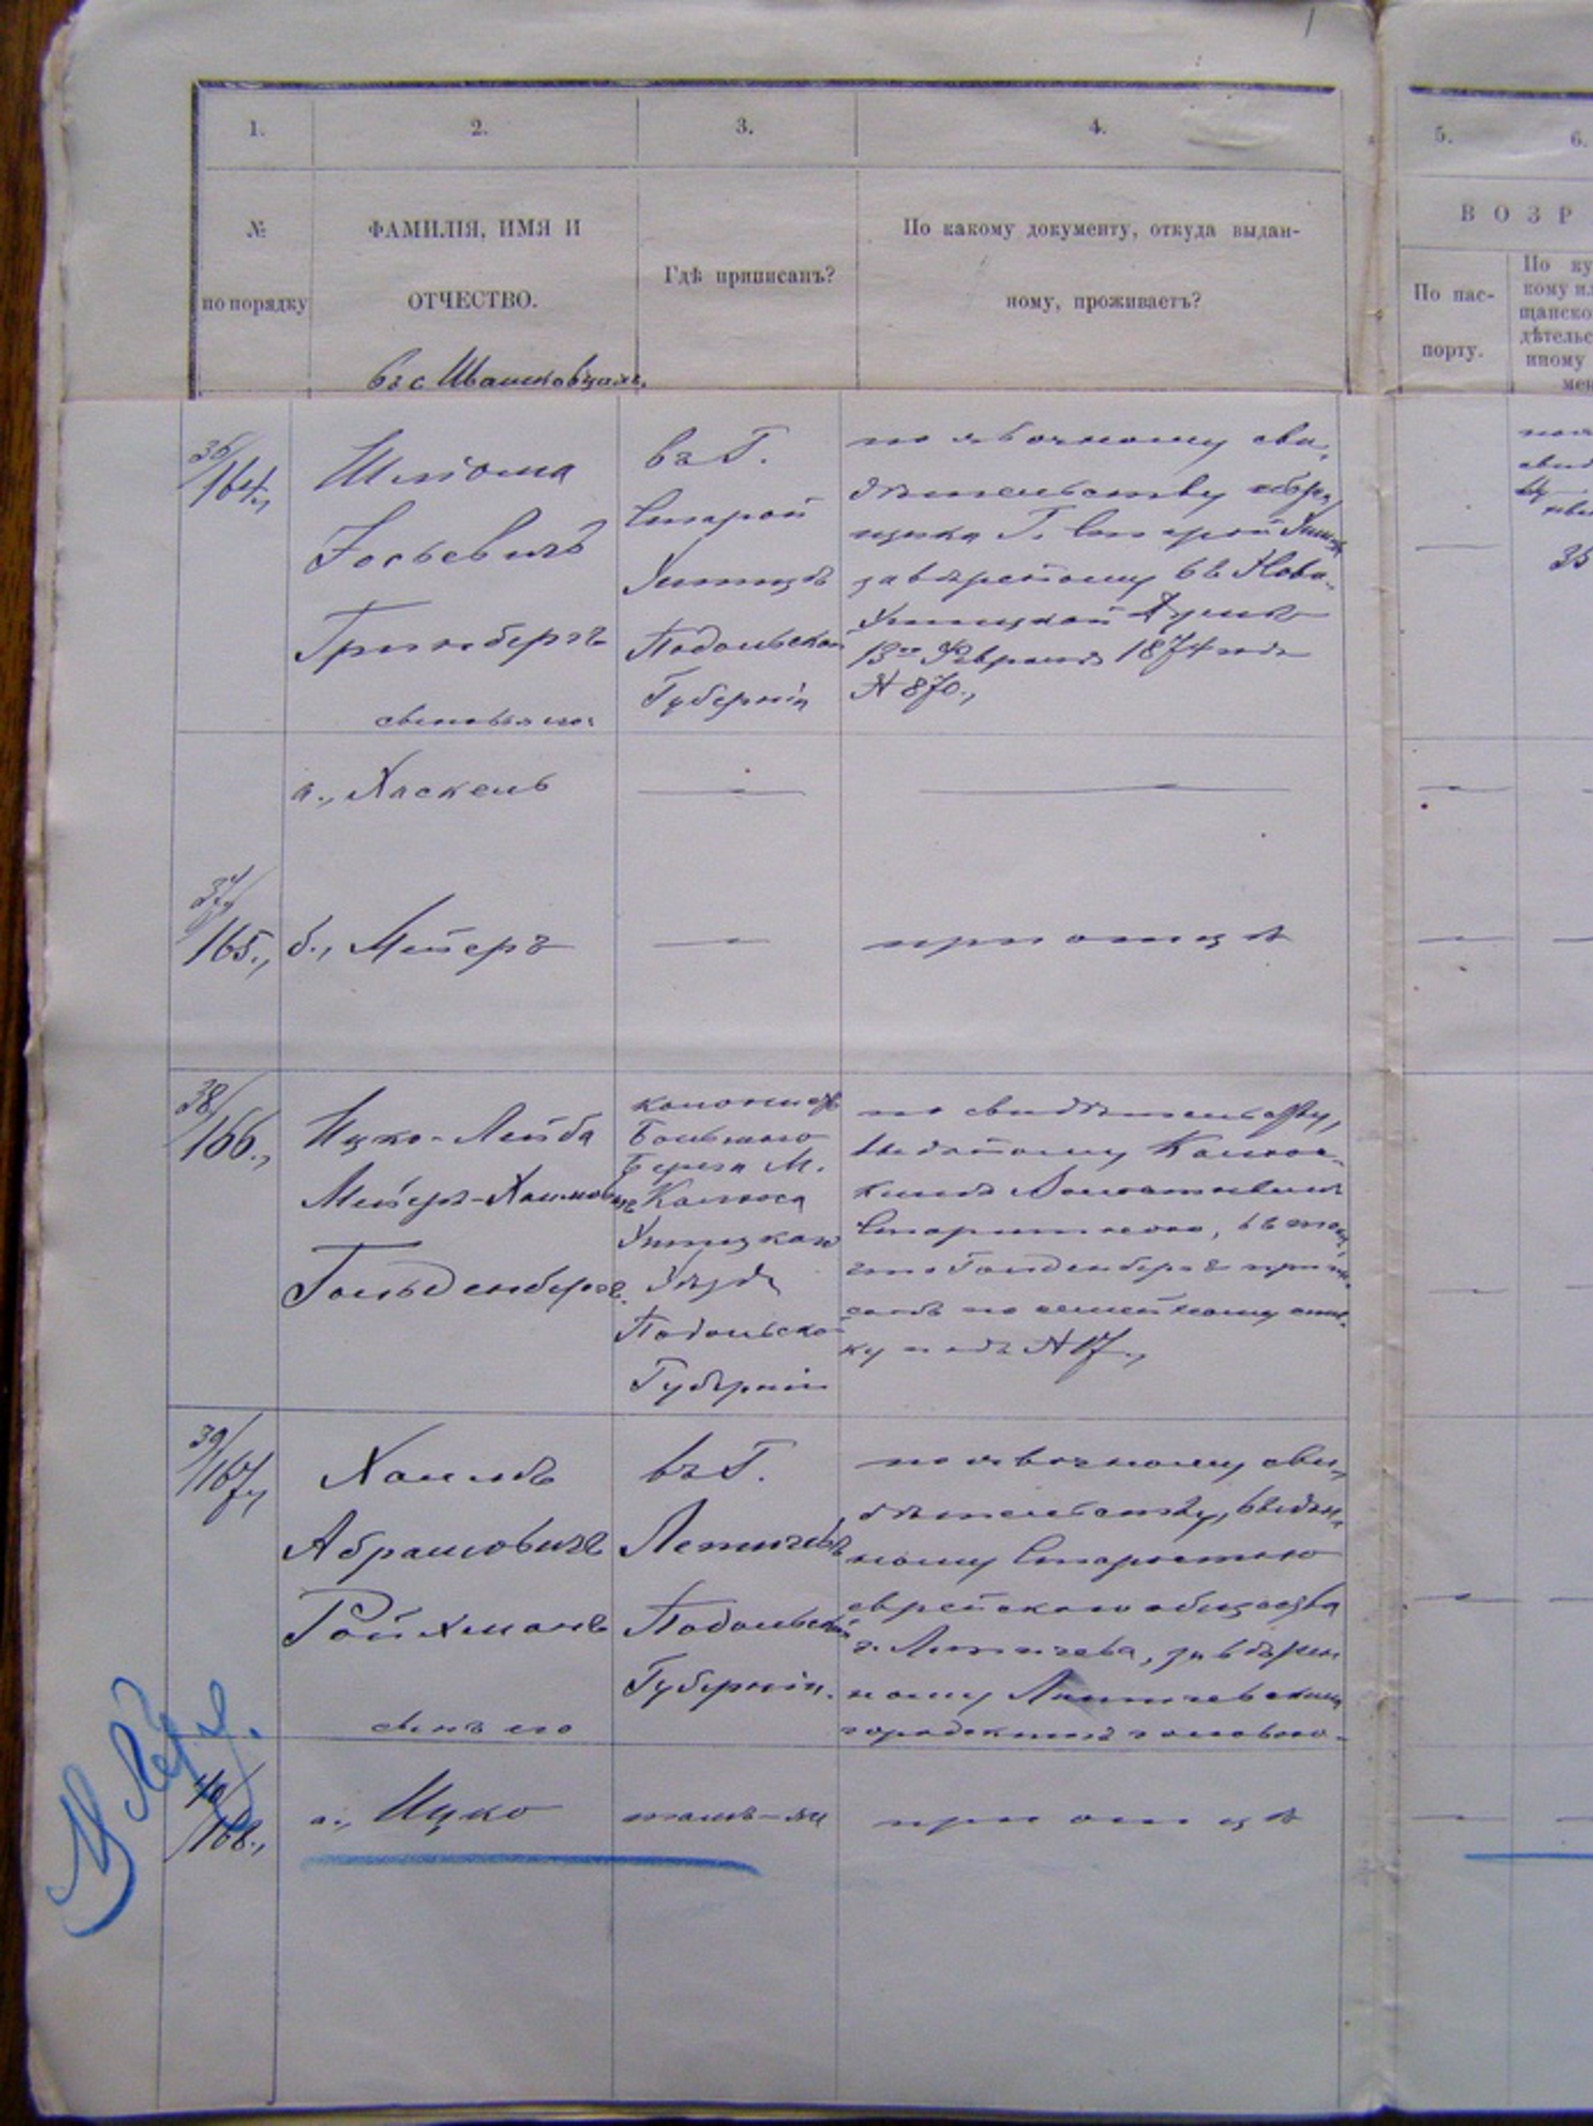 1.
2.
3.
4.
5.
6.
№
по порядку
ФАМИЛІЯ, ИМЯ И
ОТЧЕСТВО.
въ с Ивашковцахъ.
Гдѣ приписанъ?
По какому документу, откуда выдан-
ному, проживаетъ?
ВОЗР
По пас-
порту.
По ку
кому ил
щанско
дѣтельс
нному
мен
36/
164.,
Шлiома
Іосьевичъ
Гринбергъ
сыновья его:
въ Г.
Старой
Ушицѣ
Подольской
Губерніи
по явочному сви-
дѣтельству
Г. Старой Ушицы
завѣренному въ Ново-
Ушицкой Думѣ
13го Февраля 1874 года
№ 870.,
35
а., Хаскель
37/
165.,
б., Мейеръ
при отцѣ
38/
166.,
Ицко-Лейба
Мейеръ-Хаимовичъ
Гольденбергъ.
колонистъ
Большого
Берега М.
Калюса
Ушицкаго
Уѣзда
Подольской
Губерніи
по свидѣтельству,
выданному Калюс-
кимъ Волостнымъ
Старшиною, въ томъ,
что Голденбергъ припи-
санъ по семейному спис-
ку подъ № 17.,
39/
167.,
Хаимъ
Абрамовичъ
Ройхманъ
сынъ его
въ Г.
Летичевѣ
Подольской
Губерніи.
по явочному сви-
дѣтельству, выдан-
ному Старостою
еврейскаго общества
г. Летичева, завѣрен
ному Летичевскимъ
городскимъ головою.
40/
168.,
а., Ицко
тамъ-же
при отцѣ